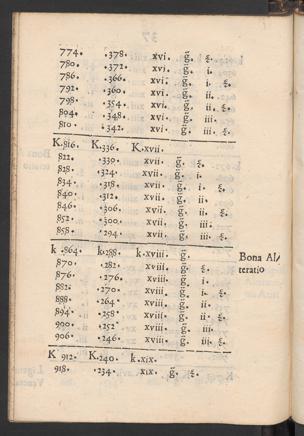 774. .378. xvi. g̅. ξ.
780. .372. xvi. g̅.
786. .366. xvi. g̅. i.
792. .360. xvi. g̅. i. ξ.
798. .354. xvi. g̅. ii.
804. .348. xvi. g̅. iii.
810. .342. xvi. g̅. iii. ξ.
K.816. K.336. K.xvii.
822. .330. xvii. g̅. ξ.
828. .324. xvii. g̅. i.
834. .318. xvii. g̅. i. ξ.
840. .312. xvii. g̅. ii.
846. .306. xvii. g̅. ii. ξ.
852. .300. xvii. g̅. iii.
858. .294. xvii. g̅. iii. ξ.
k .864. k.288. k.xviii. g̅.
Bona Al/
teratio
870. .282. xviii. g̅. ξ.
876. .276. xviii. g̅. i.
882. .270 xviii. g̅. i. ξ.
888. .264. xviii. g̅. ii.
894. .258. xviii. g̅. ii. ξ.
900. .252 xviii. g̅. iii.
906. .246. xviii. g̅. iii. ξ.
K 912. K.240. k.xix.
918. .234. xix. g̅. ξ.